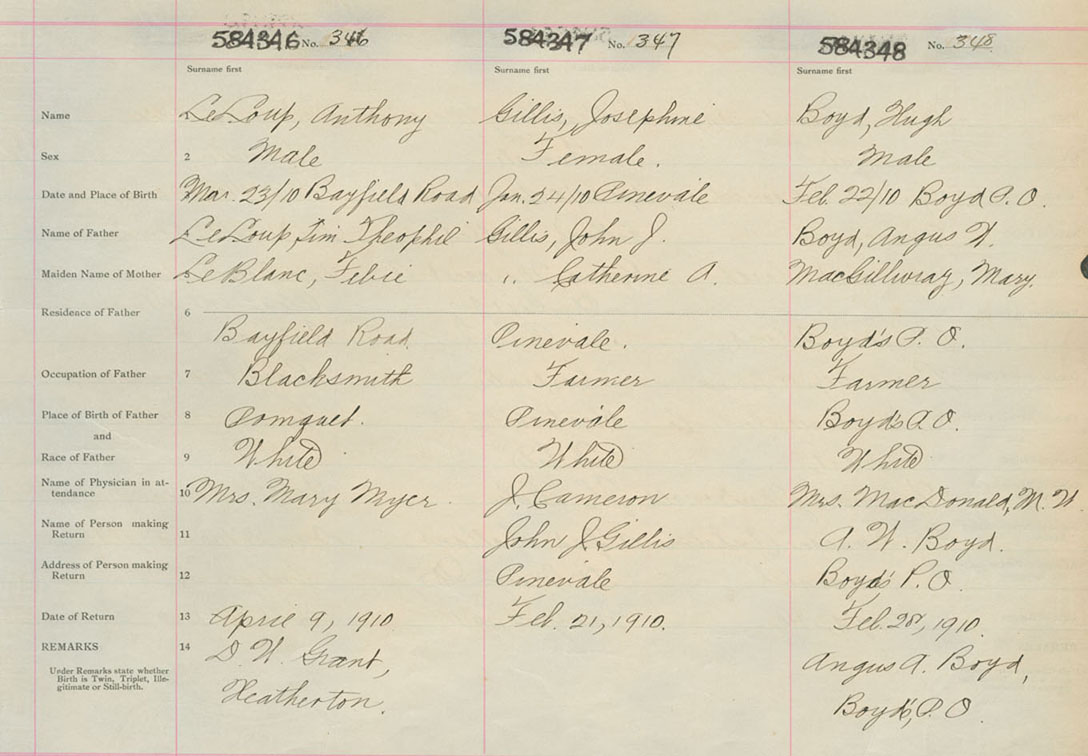 584346 No. 346 584347 No. 347 584348 No. 348
Surname first Surname first Surname first
Name LeLoup, Anthony Gillis, Josephine Boyd, Hugh
Sex 2 Male Female. Male
Date and Place of Birth Mar. 23/10 Bayfield Road Jan. 24/10 Pinevale Feb. 22/10 Boyd P.O.
Name of Father LeLoup, Jim Theophil Gillis, John J. Boyd, Angus W.
Maiden Name of Mother LeBlanc, Febie " Catherine A. MacGillivray, Mary.
Residence of Father 6
Bayfield Road Pinevale. Boyd's P.O.
Occupation of Father 7 Blacksmith Farmer Farmer
Place of Birth of Father 8 Pomquet. Pinevale Boyd's P.O.
and
Race of Father 9 White White White
Name of Physician in at-
tendance 10 Mrs. Mary Myer J. Cameron Mrs. MacDonald, M.W.
Name of Person making
Return 11 John J Gillis A. W. Boyd.
Address of Person making
Return 12 Pinevale Boyd's P.O.
Date of Return 13 April 9, 1910 Feb. 21, 1910. Feb. 28, 1910.
REMARKS 14 D. W. Grant, Angus A. Boyd,
Under Remarks state whether
Birth is Twin, Triplet, Ille-
gitimate or Still-birth.
Heatherton. Boyd's, P.O.